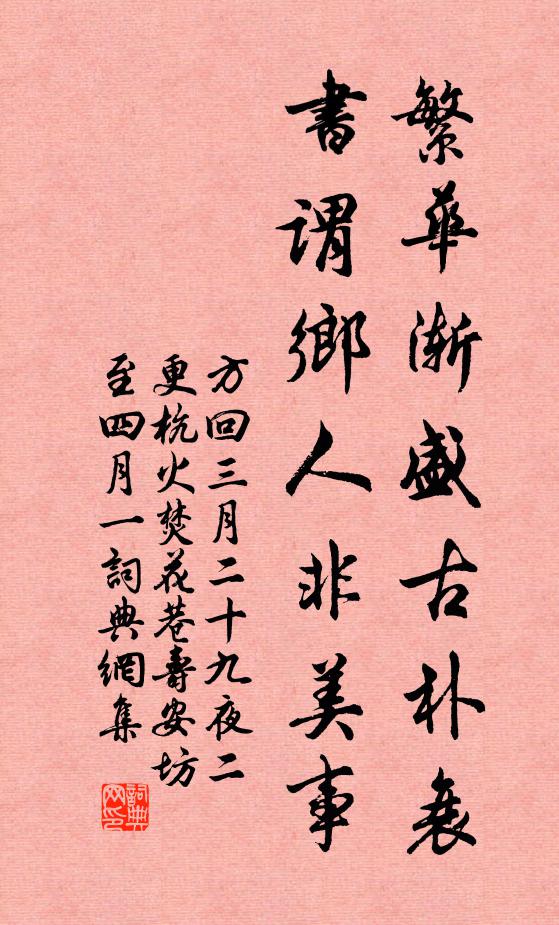 繁華漸盛古朴衰
書謂鄉人非美事
方回三月二十九夜二
更杭火焚花巷壽安坊
至四月一詞典網集
詞典网印